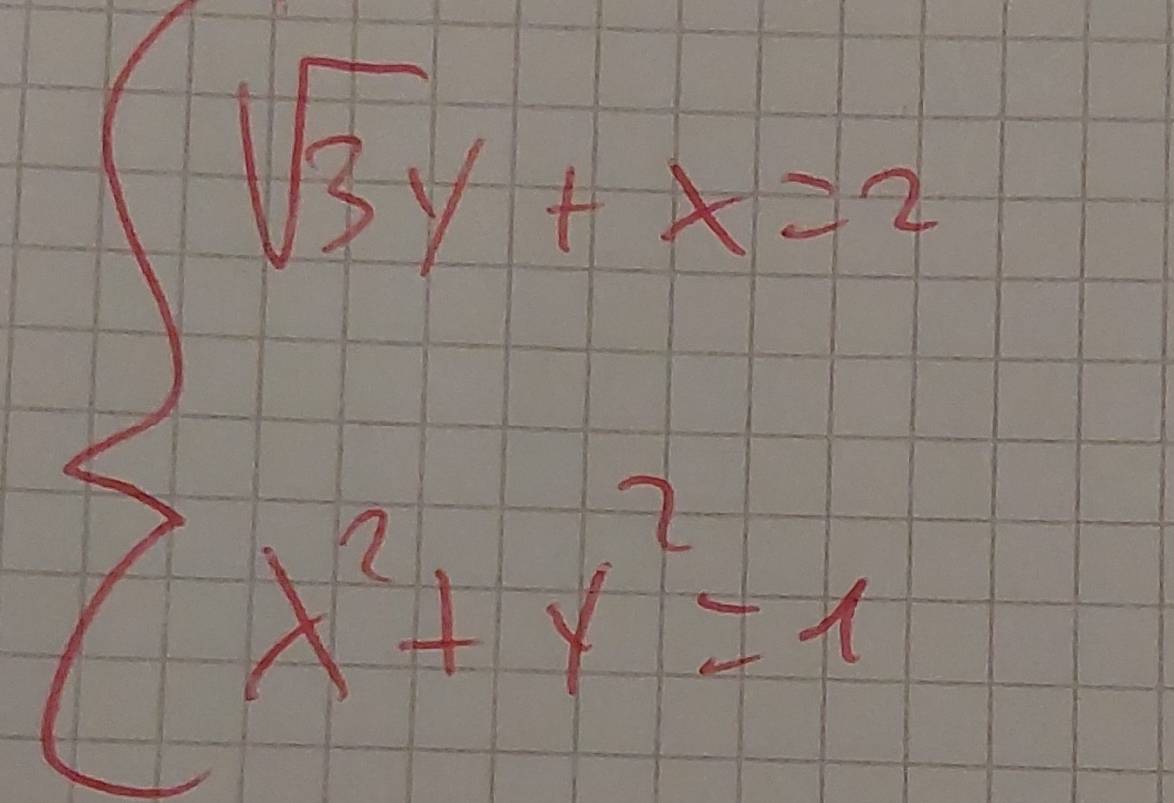 √3y + x = 2
x² + y² = 1